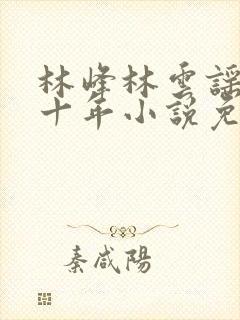 林峰林雲謡
十年小説免
秦咸陽